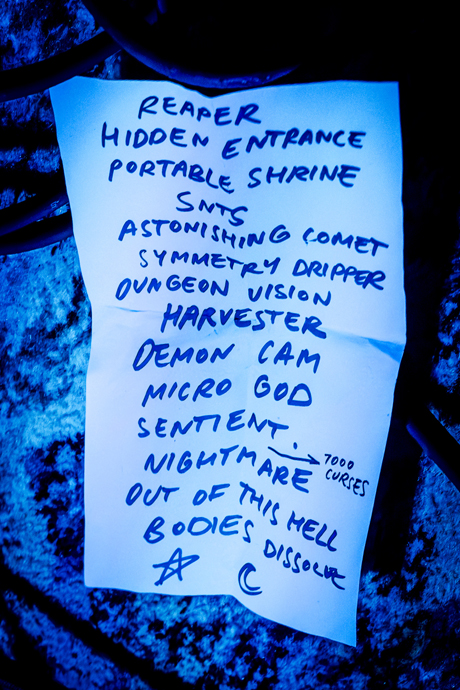 REAPER
HIDDEN ENTRANCE
PORTABLE SHRINE
SNTS
ASTONISHING COMET
SYMMETRY DRIPPER
DUNGEON VISION
HARVESTER
DEMON CAM
MICRO GOD
SENTIENT
NIGHTMARE
7000
CURSES
OUT OF THIS HELL
BODIES DISSOLVE